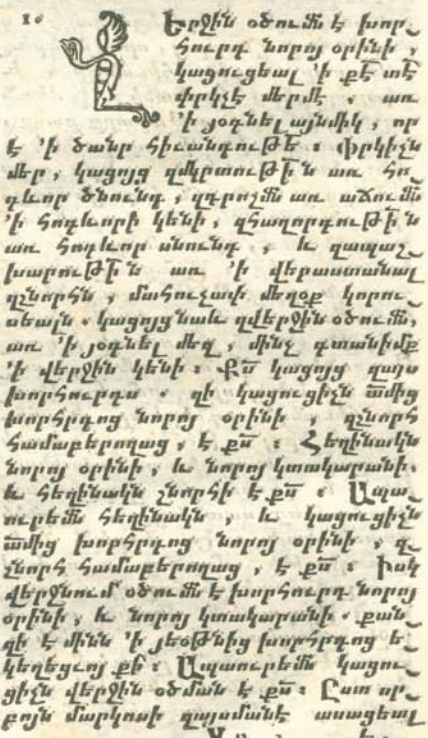 10
Երջին օծումն է խոր֊
հուրդ նորոյ օրինի ,
կացուցեալ 'ի քէ տէ
փրկչէ մերմէ , առ
'ի յօգնել այնմիկ , որ
է 'ի ծանր հիւանդութե ։ Փրկիչն
մեր , կացոյց զմկրտութի ն առ հո֊
գևոր ծնունդ , զդրոշմն առ աճումն
'ի հոգևորի կենի , զհաղորդութի ն
առ հոգևոր սնունդ , և զապաշ֊
խարութի ն առ 'ի վերաստանալ֊
զշնորհն , մահուչափ մեղօք կորու֊
սեալն . կացոյցնաև զվերջին օծումն,
առ 'ի յօգնել մեզ , մինչ գտանիմք
'ի վերջին կենի ։ Քս կացոյց զայս
խորհուրդս . զի կացուցիչն ամից
խորհրդոց նորոյ օրինի , զշնորհ
համաբերողաց , է քս ։ Հեղինակն
նորոյ օրինի , և նորոյ կտակարանի.
և հեղինակն շնորհի է քս ։ Ապա֊
ուրեմն հեղինակն , և կացուցիչն
ամից խորհրդոց նորոյ օրինի , զ֊
շնորհ համաբերողաց , է քս ։ Իսկ
վերջնում օծումն է խորհուրդ նորոյ
օրինի , և նորոյ կտակարանի . քան֊
զի է մինն 'ի յեօթնից խորհրդոց ե֊
կեղեցւոյ քի ։ Ապաուրեմն կացու֊
ցիչն վերջին օծման է քս ։ Ըստ որ֊
բոյն մարկոսի զայսմանէ ասացեալ